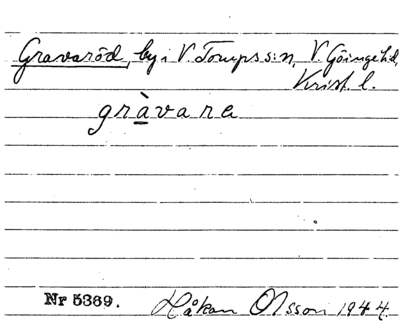 Gravaröd, by i V. Torups s:n, V. Göinge hd,
Krist. l.
gràvara
Nr 5369. Håkan Olsson 1944.